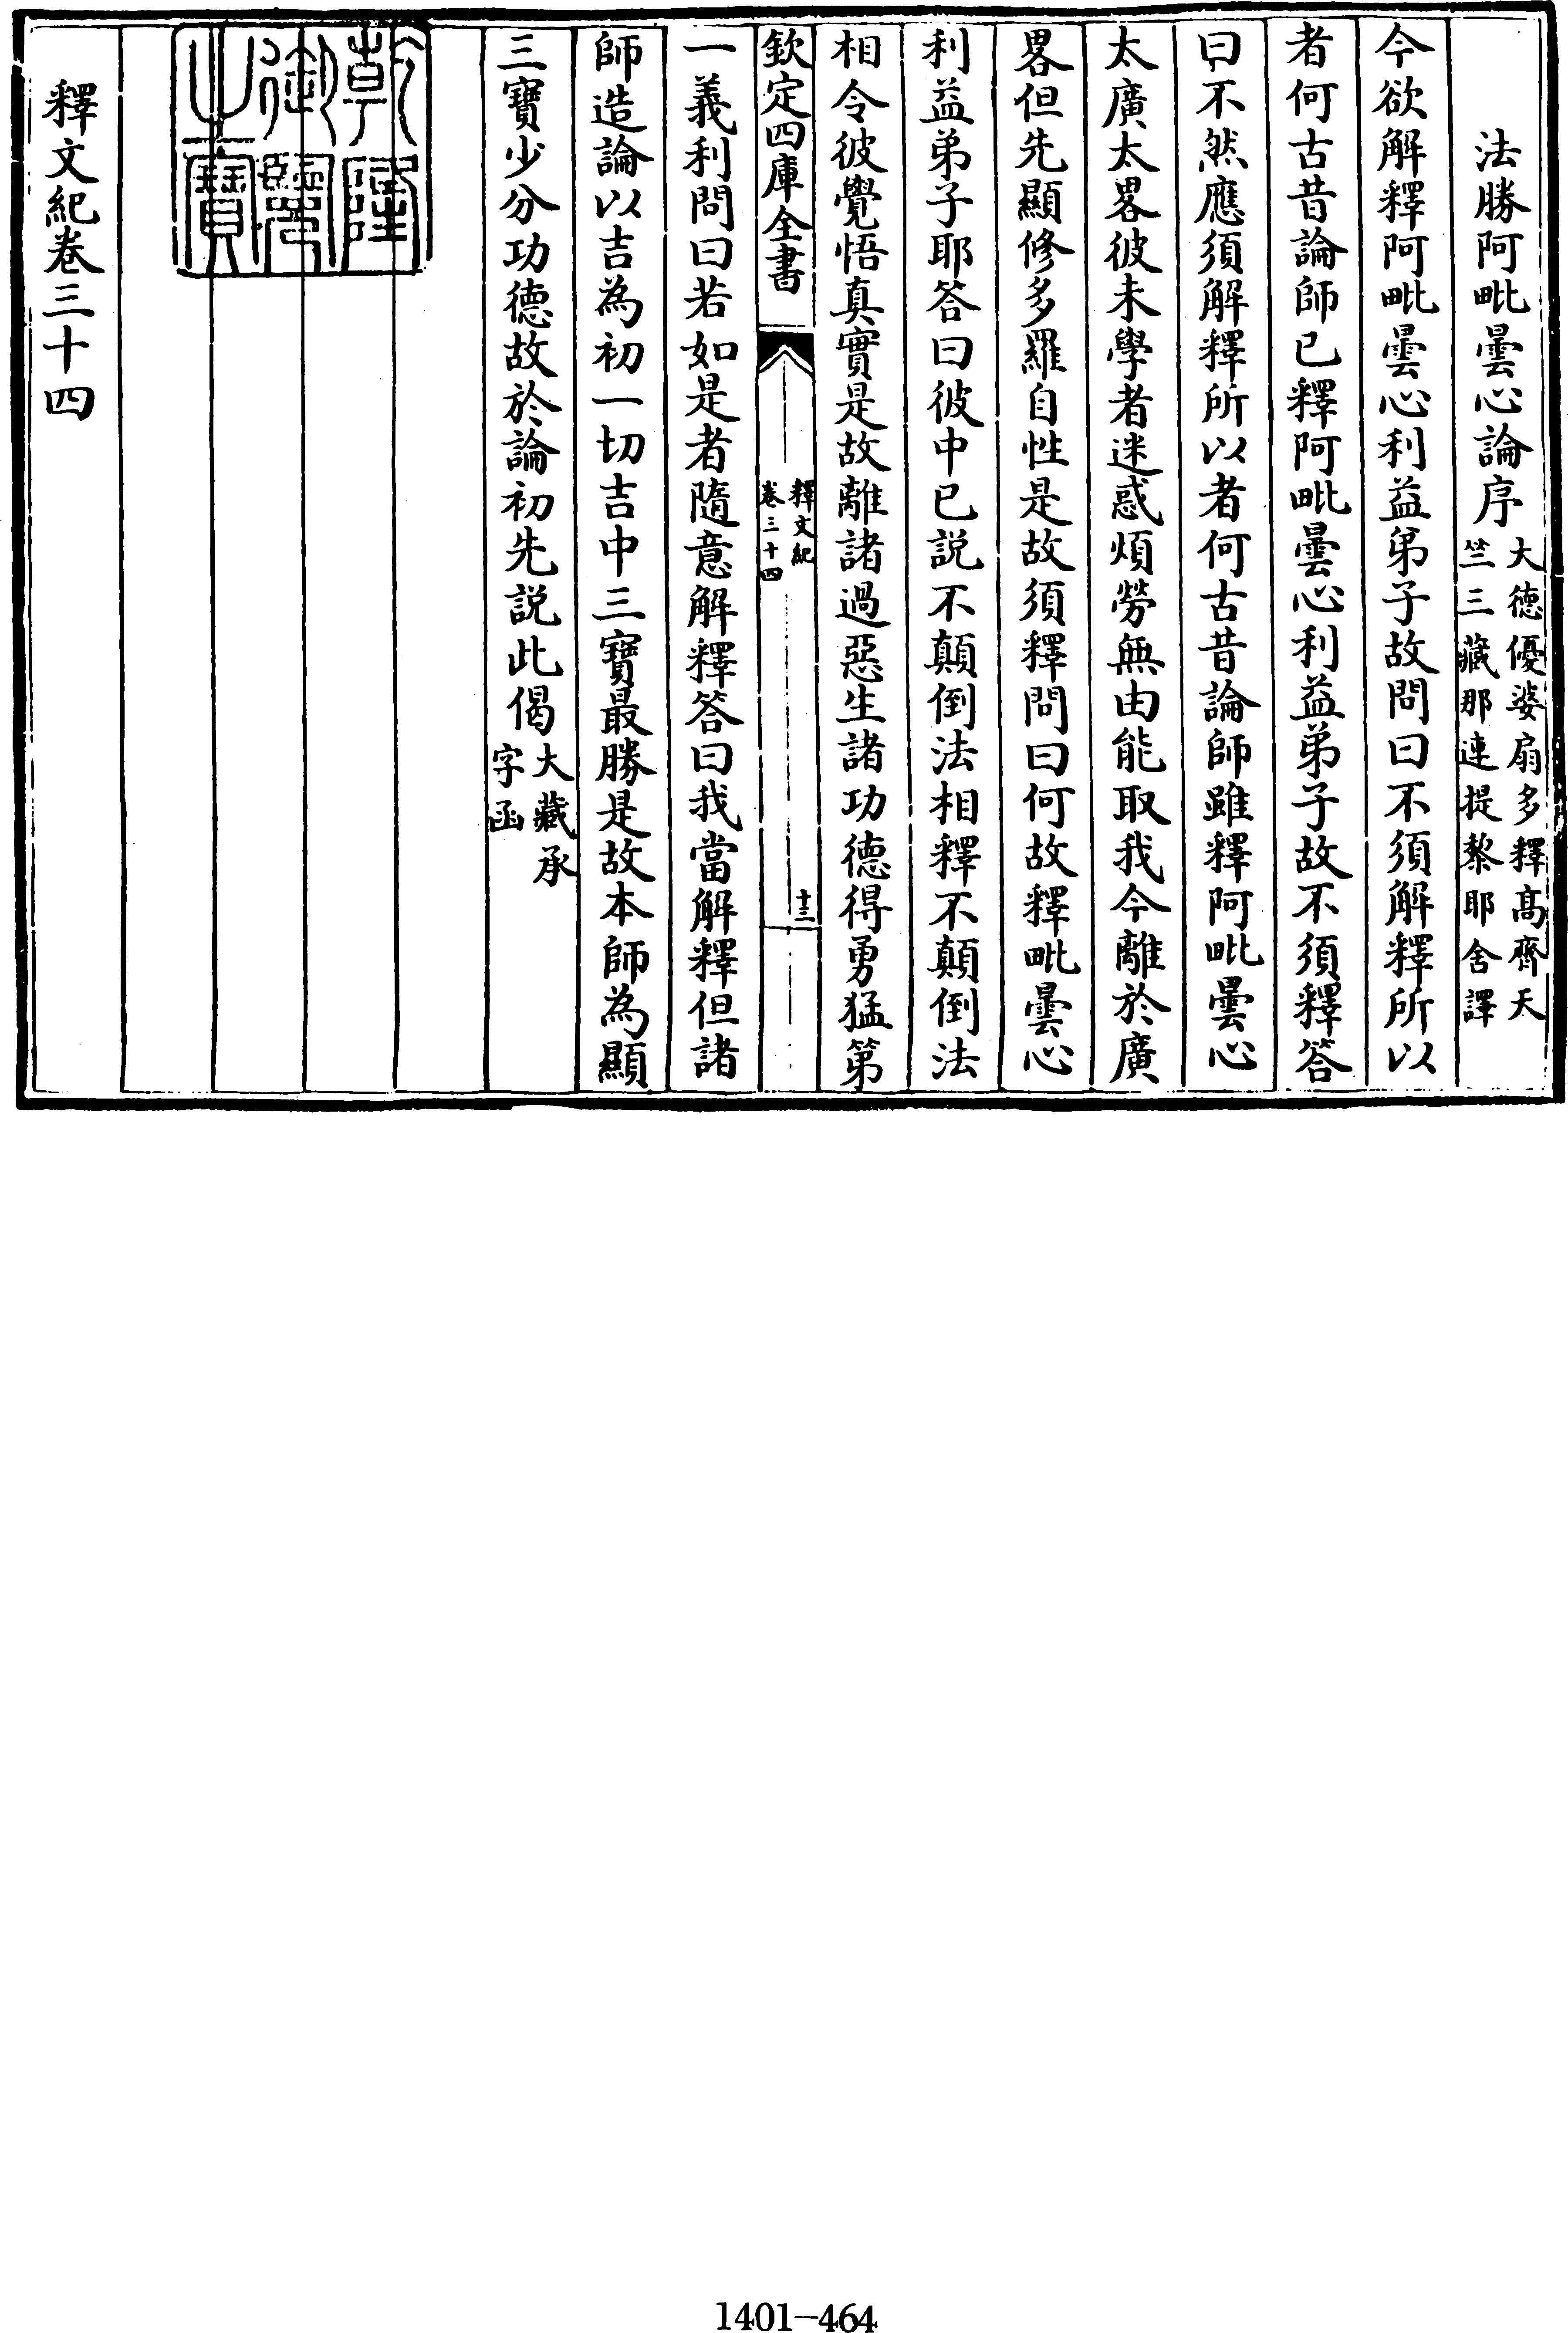 法勝阿毗曇心論序大德優婆扇多釋高齊天
竺三藏那連提黎耶舍譯
今欲解釋阿毗曇心利益弟子故問曰不須解釋所以
者何古昔論師已釋阿毗曇心利益弟子故不須釋答
曰不然應須解釋所以者何古昔論師雖釋阿毗曇心
太廣太畧彼未學者迷惑煩勞無由能取我今離於廣
畧但先顯修多羅自性是故須釋問曰何故釋毗曇心
利益弟子耶答曰彼中已説不顛倒法相釋不顛倒法
相令彼覺悟真實是故離諸過惡生諸功德得勇猛第
欽定四庫全書
釋文紀
卷三十四
十三
一義利問曰若如是者隨意解釋答曰我當解釋但諸
師造論以吉為初一切吉中三寶最勝是故本師為顯
三寶少分功德故於論初先説此偈大藏承
字函
乾隆御覽之寶
釋文紀卷三十四
1401-464